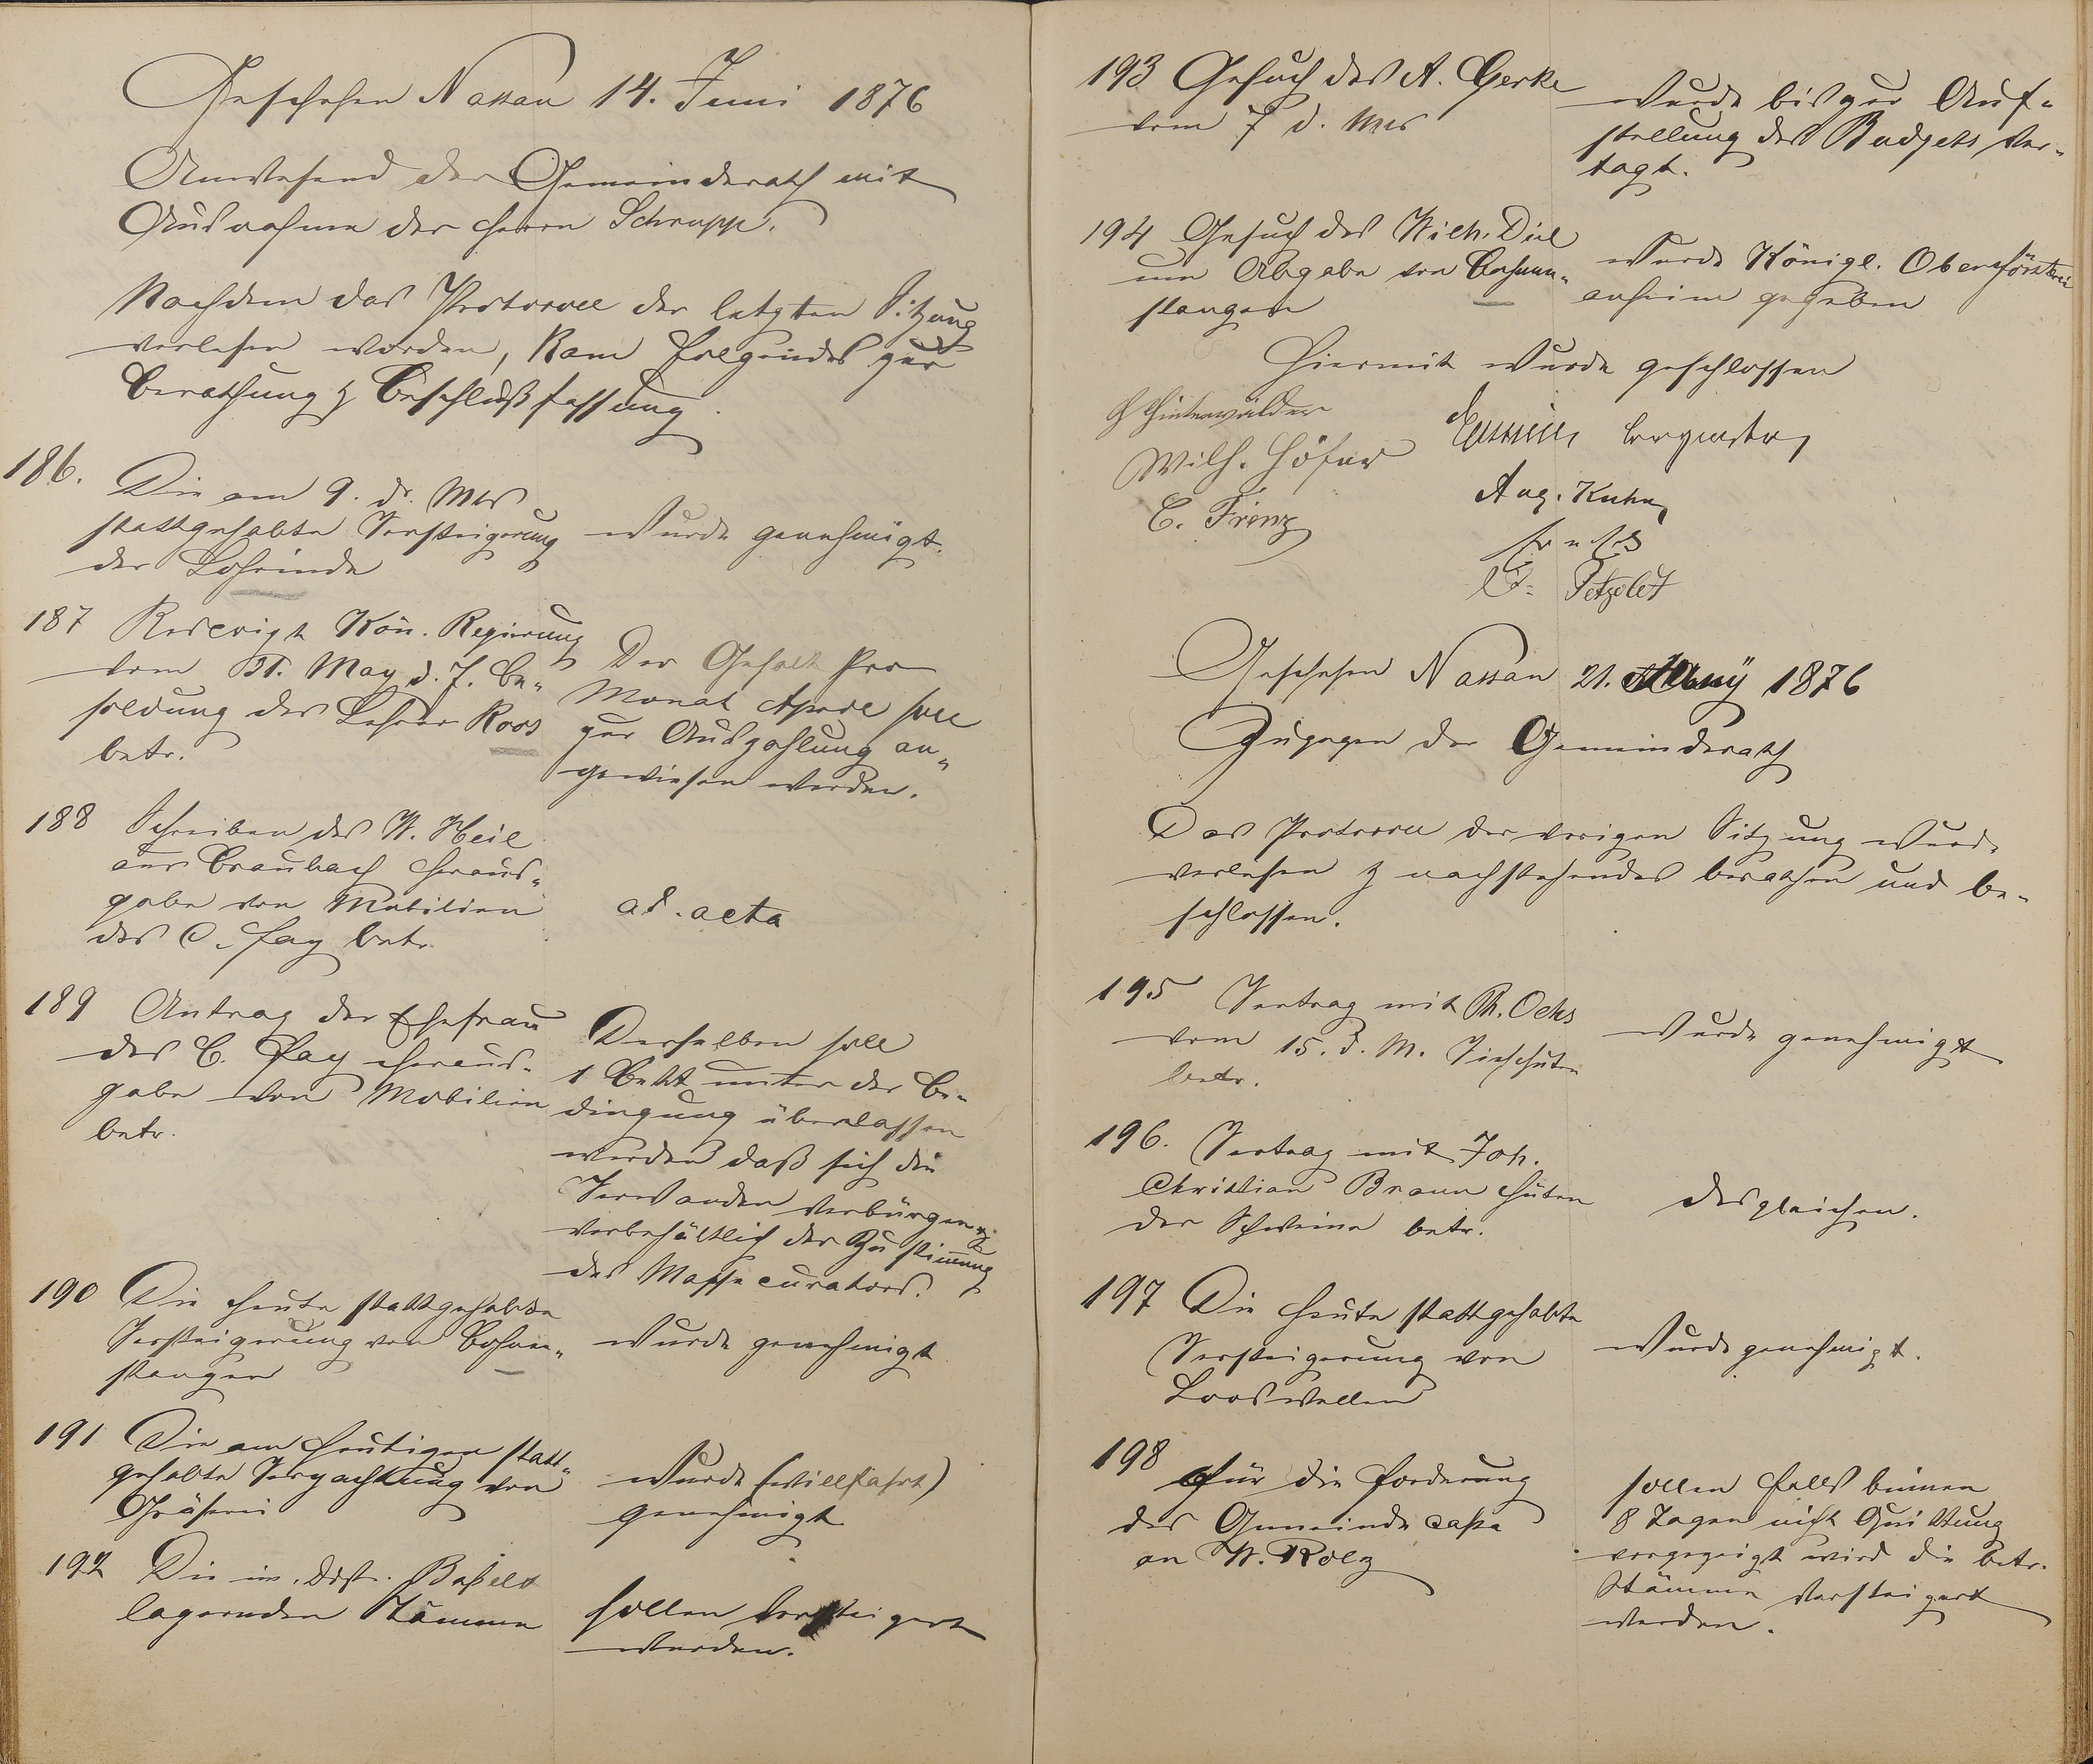 Geschehen Nassau 14. Juni 1876
Anwesend der Gemeinderath mit
Ausnahme des Herrn Schrupp.
Nachdem das Protocoll der letzten Sitzung
verlesen worden, kam folgendes zur
Berathung & Beschlußfassung.
186.
Die am 9. ds. Mts
stattgehabte Versteigerung
der Lohrinde
wurde genehmigt.
187 Rescript Kön. Regierung
vom 31. May d. J. Be-
soldung des Lehrer Roos
betr.
Der Gehalt pro
Monat April soll
zur Auszahlung an-
gewiesen werden.
188 Schreiben des W. Heil
aus Braubach Heraus-
gabe von Mobilien
des C. Fay betr.
ad. acta
189 Antrag der Ehefrau
des C. Fay Heraus-
gabe von Mobilien
betr.
Derselben soll
1 Bett unter der Be-
dingung überlassen
werden daß sich die
Verwanden verbürgen &
vorbehältlich der Zustimmung
des Masse curators.
190 Die heute stattgehabte
Versteigerung von Bohnen-
stangen
wurde genehmigt
191 Die am heutigen statt-
gehabte Verpachtung von
Gräserei
wurde (willfahrt)
genehmigt
192 Die im Dist.
lagernden Stämme
sollen versteigert
werden.
193 Gesuch des A. Gerke
vom 7 d. Mts
wurde bis zur Auf-
stellung des Budgets ver-
tagt.
194 Gesuch des Wilh. Diel
um Abgabe von Bohnen-
stangen
wurde Königl. Oberförsterei
anheim gegeben
Hiermit wurde geschlossen
Hinterwälder
Wilh. Höfer
C. Frenz
Aug. Kuhn
Petzoldt
Geschehen Nassau 21. Juny 1876
Zugegen der Gemeinderath
Das Protocoll der vorigen Sitzung wurde
verlesen & nachstehendes berathen und be-
schlossen.
195 Vertrag mit Ph. Ochs
vom 15. d. M. Viehhüten
betr.
wurde genehmigt
196. Vertrag mit Joh.
Christian Braun Hüten
der Schweine betr.
desgleichen.
197 Die heute stattgehabte
Versteigerung von
Looswellen
wurde genehmigt.
198 Für die Forderung
der Gemeinde casse
an W. Rolz
sollen falls binnen
8 Tagen nicht Quittung
vorgezeigt wird die betr.
Stämme versteigert
werden.